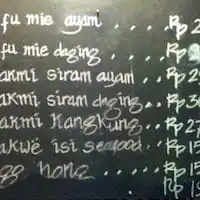 fu mie ayam . . . . Rp 2
fu mie daging . . . . Rp
akmi siram ayam . . . Rp 2
akmi siram dging . . . Rp 30
akmi Kangkung . . . Rp 27
akwé isi seafood . . Rp 15
hong . . . . Rp 15
Rp